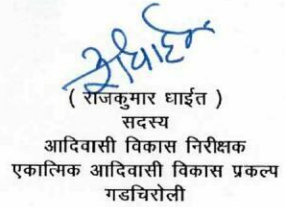 ( राजकुमार धाईत )
सदस्य
आदिवासी विकास निरीक्षक
एकात्मिक आदिवासी विकास प्रकल्प
गडचिरोली